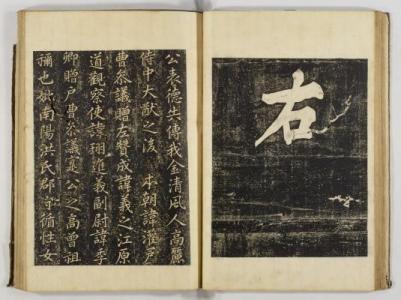 右
公表德失傳我金清風人高麗
侍中大猷之後 本朝諱灌戶
曹叅議贈左贊成諱義之江原
道觀察使諱進義副尉諱季
卿贈戶曹叅議寔公之高曾祖
禰也妣南陽洪氏郡守循性女